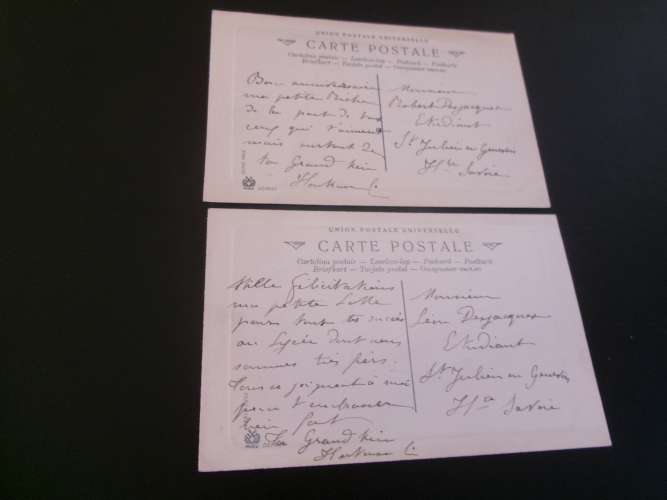 UNION POSTALE UNIVERSELLE
CARTE POSTALE
Cartolina postale — Levelezo-lap — Postcard — Postkarte
Briefkort — Tarjeta postal
Bon anniversaire
ma petite
de la part de
ceux qui t'aiment
mais surtout de
ton Grand
Monsieur
Robert Desjacques
Etudiant
St Julien en Genevois
Hte Savoie
UNION POSTALE UNIVERSELLE
CARTE POSTALE
Cartolina postale — Levelezo-lap — Postcard — Postkarte
Briefkort — Tarjeta postal
Mille félicitations
ma petite
pour tout tes succès
au Lycée dont nous
sommes très fiers.
Tous se joignent à moi
pour t'embrasser
bien fort
Ta Grand
Monsieur
Léon Desjacques
Etudiant
St Julien en Genevois
Hte Savoie